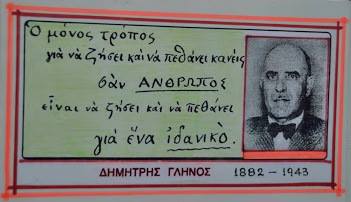 Ὁ μόνος τρόπος
γιὰ νὰ ζήσει καὶ νὰ πεθάνει κανεὶς
σὰν ΑΝΘΡΩΠΟΣ
εἶναι νὰ ζήσει καὶ νὰ πεθάνει
γιὰ ἕνα ἰδανικὸ.
ΔΗΜΗΤΡΗΣ ΓΛΗΝΟΣ 1882 - 1943